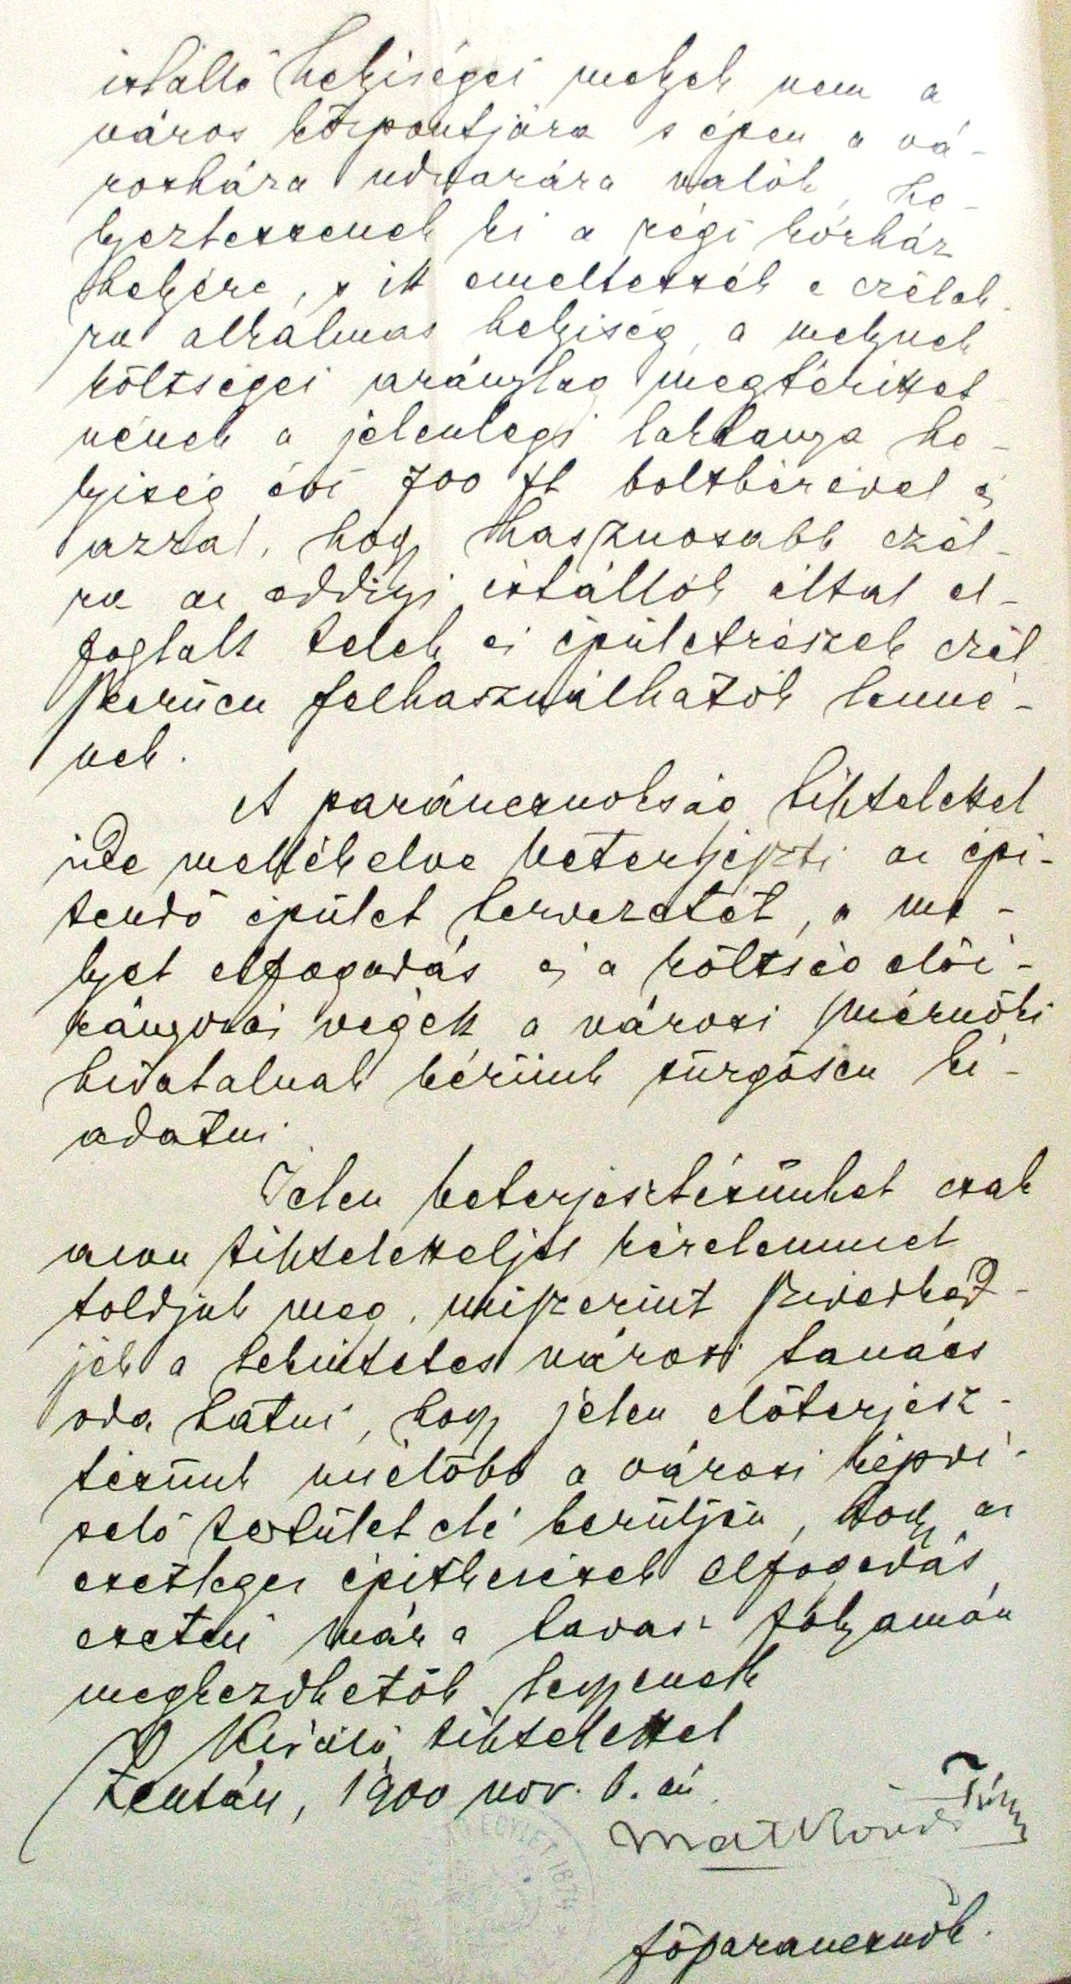 istálló helyiségei melyek nem a
város központjára s épen a vá-
rosháza udvarára valók, he-
lyeztessenek ki a régi kórház
helyére, s itt emeltessék e czélok-
ra alkalmas helyiség, a melynek
költségei aránylag megtérittet
nének a jelenlegi laktanya he-
lyiség évi 700 ft boltbérével és
azzal, hogy hasznosabb czél-
ra az eddigi istállók által el-
foglalt telek és épületrészek czél
szerüen felhasználhatók lenné-
nek.
A parancsnokság tisztelettel
ide mellékelve beterjeszti az épi-
tendő épület tervezetét, a me-
lyet elfogadás és a költség elői-
rányozás végett a városi mérnöki
hivatalnak kérünk sürgősen ki-
adatni.
Jelen beterjesztésünket csak
azon tiszteletteljes kérelemmel
toldjuk meg, miszerint sziveskedj-
jék a tekintetes városi tanács
oda hatni, hogy jelen előterjesz-
tésünk mielőbb a városi képvi-
selő testület elé kerüljön, hogy az
esetleges épitkezések elfogadás
esetén már a tavasz folyamán
megkezdhetők legyenek
Kiváló tisztelettel
Zentán, 1900 nov. 6. án.
főparancsnok.
EGYLET 1874 *